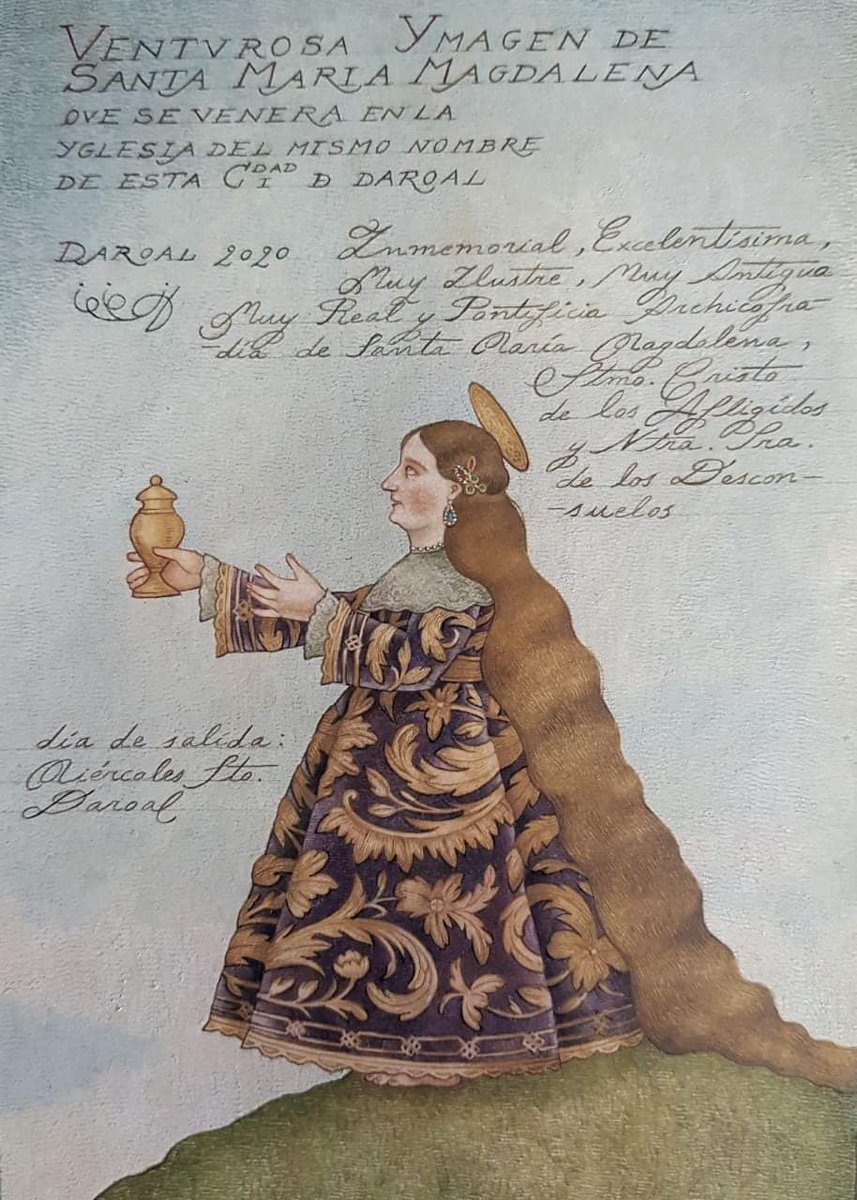 VENTVROSA YMAGEN DE
SANTA MARIA MAGDALENA
QVE SE VENERA EN LA
YGLESIA DEL MISMO NOMBRE
DE ESTA CDADI Đ DAROAL
DAROAL 2020
Inmemorial, Excelentísima,
Muy Ilustre, Muy Antigua
Muy Real y Pontificia Archicofra-
-día de Santa María Magdalena,
Stmo. Cristo
de los Afligidos
y Ntra. Sra.
de los Descon-
-suelos
día de salida:
Miércoles Sto.
Daroal